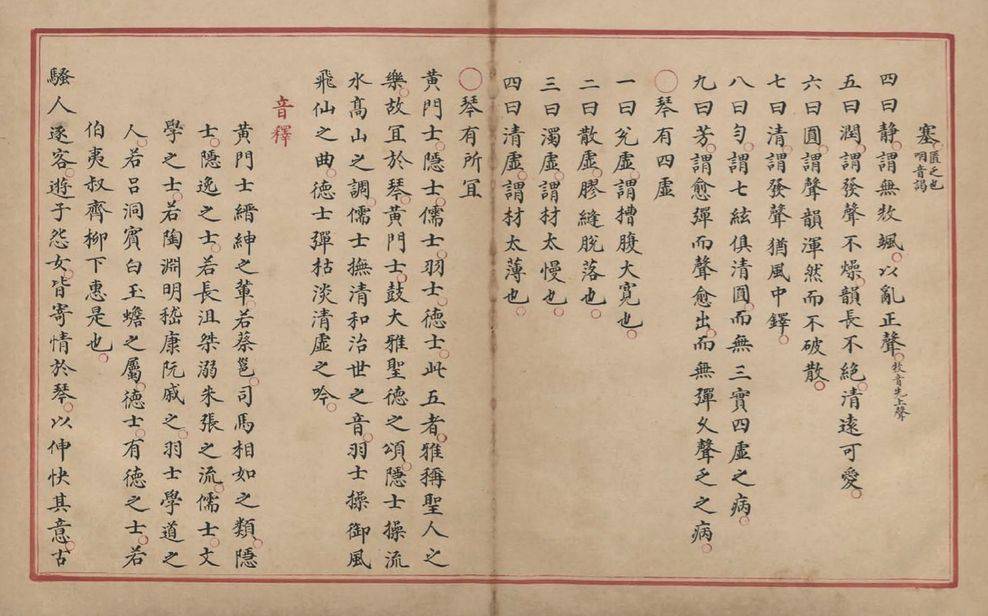 塞匱乏也明音謁
四曰静謂無㪚颯以亂正聲㪚音先上聲
五曰潤謂發聲不燥韻長不絕清遠可愛
六曰圓謂聲韻渾然而不破散
七曰清謂發聲猶風中鐸
八曰匀謂七絃俱清圓而無三實四虛之病
九曰芳謂愈彈而聲愈出而無彈久聲乏之病
○琴有四虛
一曰冗虛謂槽腹大寬也
二曰散虛膠縫脫落也
三曰濁虛謂材太慢也
四曰清虛謂材太薄也
○琴有所冝
黃門士隱士儒士羽士德士此五者雅稱聖人之
樂故冝於琴黃門士鼓大雅聖德之頌隱士操流
水高山之調儒士撫清和治世之音羽士操御風
飛仙之曲德士彈枯淡清虛之吟
音釋
黃門士縉紳之輩若蔡邕司馬相如之類隱
士隱逸之士若長沮桀溺朱張之流儒士文
學之士若陶淵明嵇康阮戚之羽士學道之
人若呂洞賓白玉蟾之屬德士有德之士若
伯夷叔齊柳下惠是也
騷人逐客逰子怨女皆寄情於琴以伸快其意古